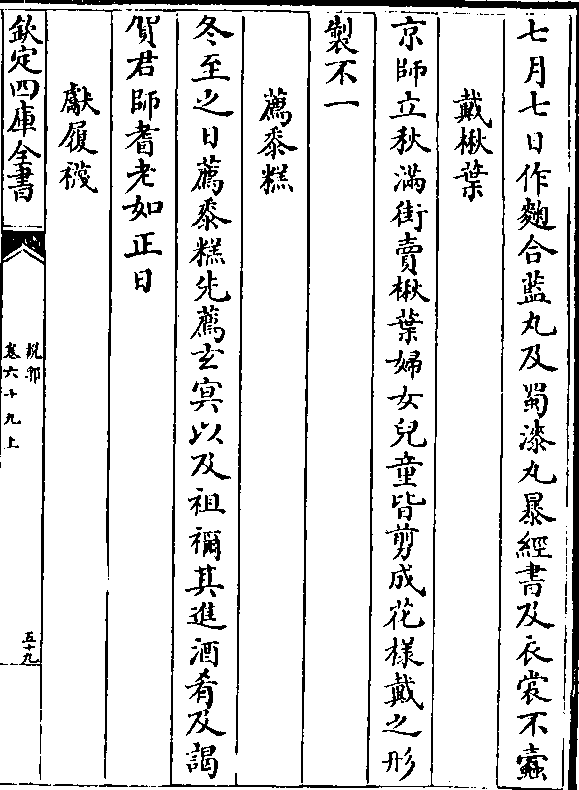 七月七日作麯合藍丸及蜀漆丸暴經書及衣裳不蠹
戴楸葉
京師立秋滿街賣楸葉婦女兒童皆剪成花樣戴之形
製不一
薦黍糕
冬至之日薦黍糕先薦玄冥以及祖禰其進酒肴及謁
賀君師耆老如正日
獻履襪
欽定四庫全書
說郛
卷六十九上
五十九